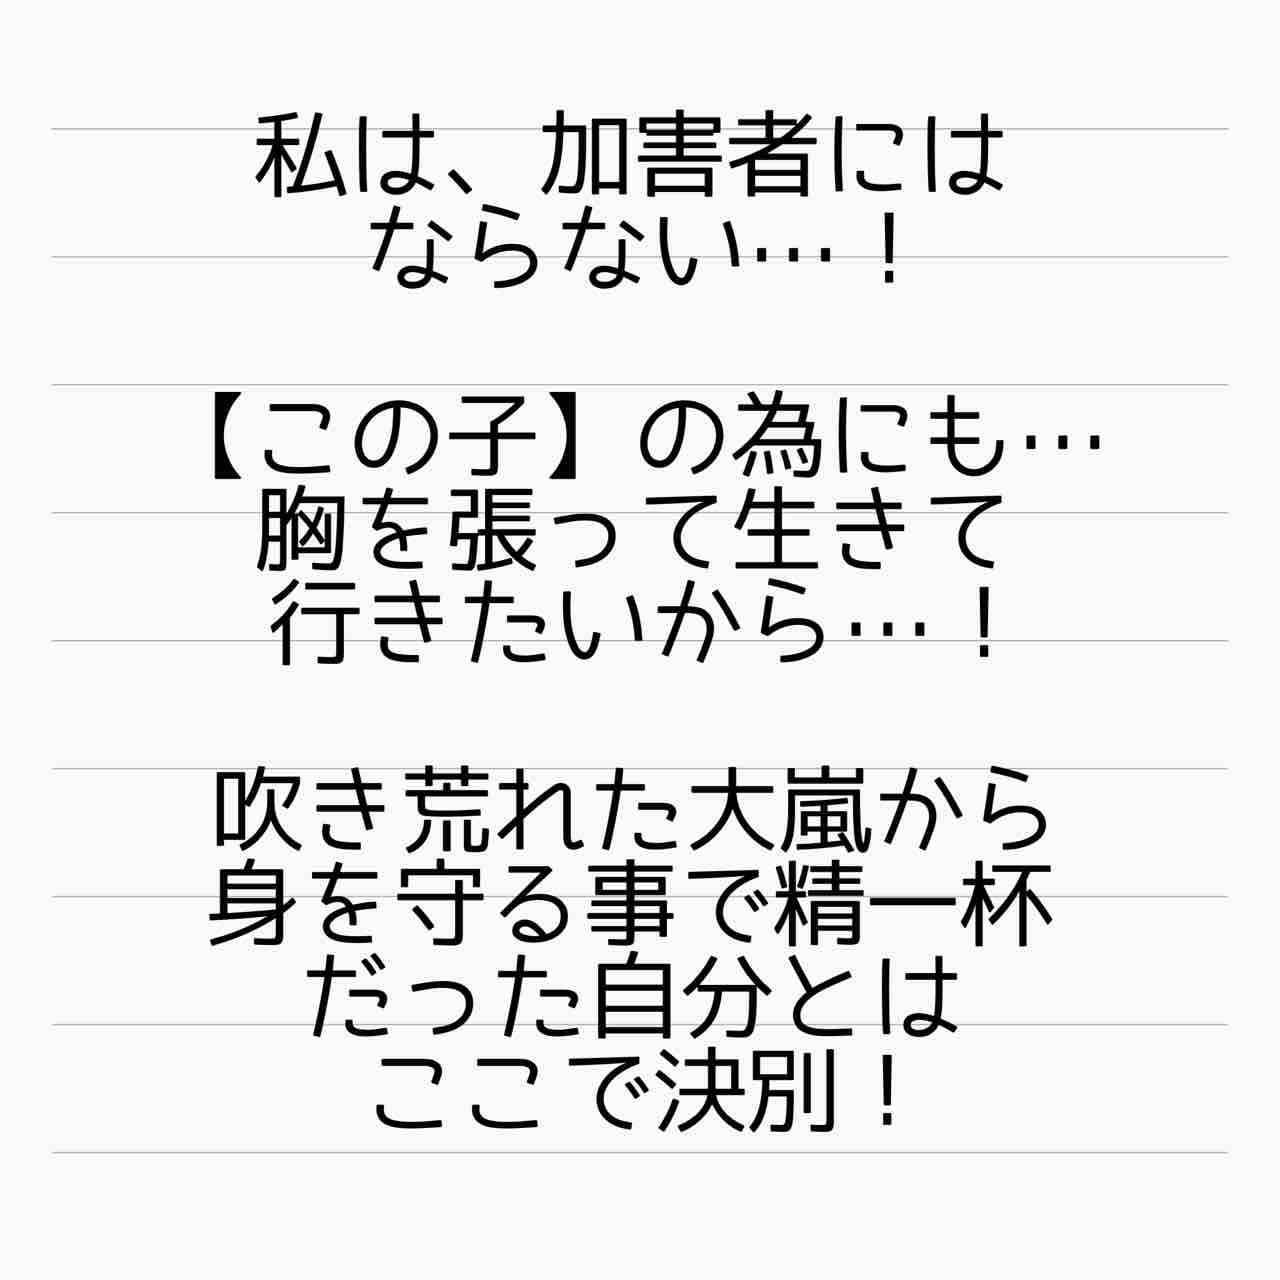 私は、加害者には
ならない…！
【この子】の為にも…
胸を張って生きて
行きたいから…！
吹き荒れた大嵐から
身を守る事で精一杯
だった自分とは
ここで決別！